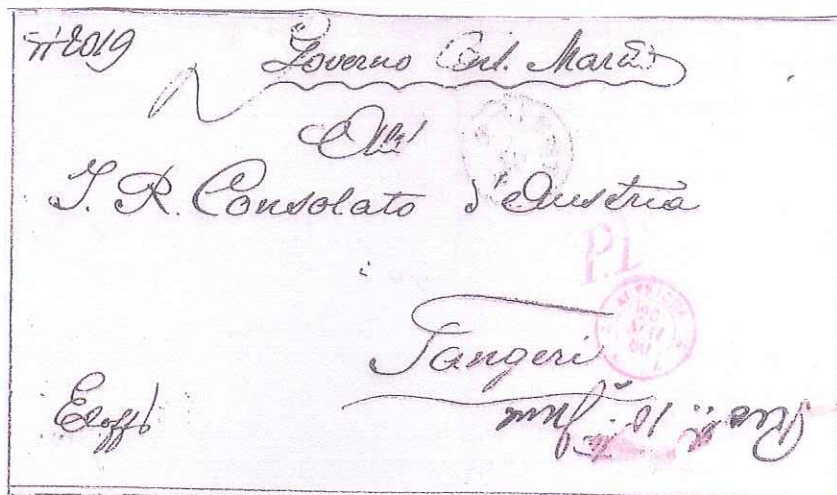 2019
Governo Cent. Marit.
All'
I. R. Consolato d'Austria
P.D.
Tangeri
Ex offo